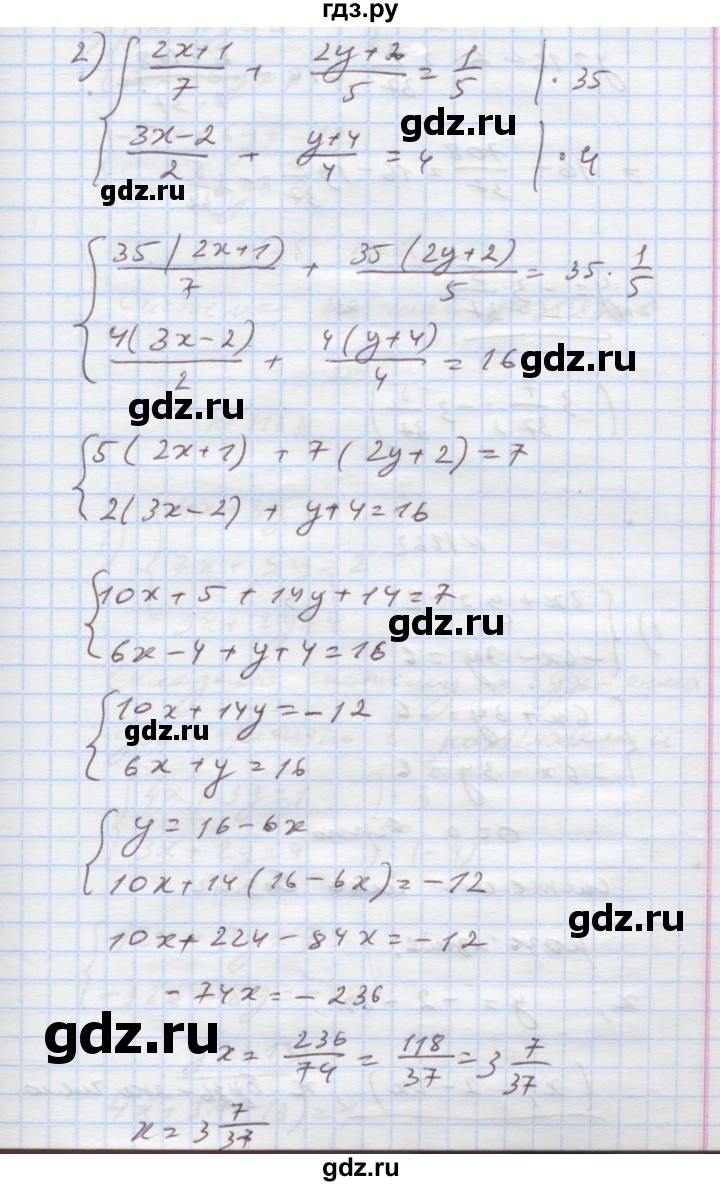 гдз.ру
2) { (2x+1)/7 + (2y+2)/5 = 1/5 | · 35
(3x-2)/2 + (y+4)/4 = 4 | · 4
gdz.ru
gdz.ru
{ 35(2x+1)/7 + 35(2y+2)/5 = 35 · 1/5
4(3x-2)/2 + 4(y+4)/4 = 16
gdz.ru
gdz.ru
{ 5(2x+1) + 7(2y+2) = 7
2(3x-2) + y+4 = 16
{ 10x + 5 + 14y + 14 = 7
gdz.ru
6x - 4 + y + 4 = 16
{ 10x + 14y = -12
gdz.ru
6x + y = 16
{ y = 16 - 6x
10x + 14(16 - 6x) = -12
gdz.ru
10x + 224 - 84x = -12
-74x = -236
gdz.ru
x = 236/74 = 118/37 = 3 7/37
x = 3 7/37
gdz.ru